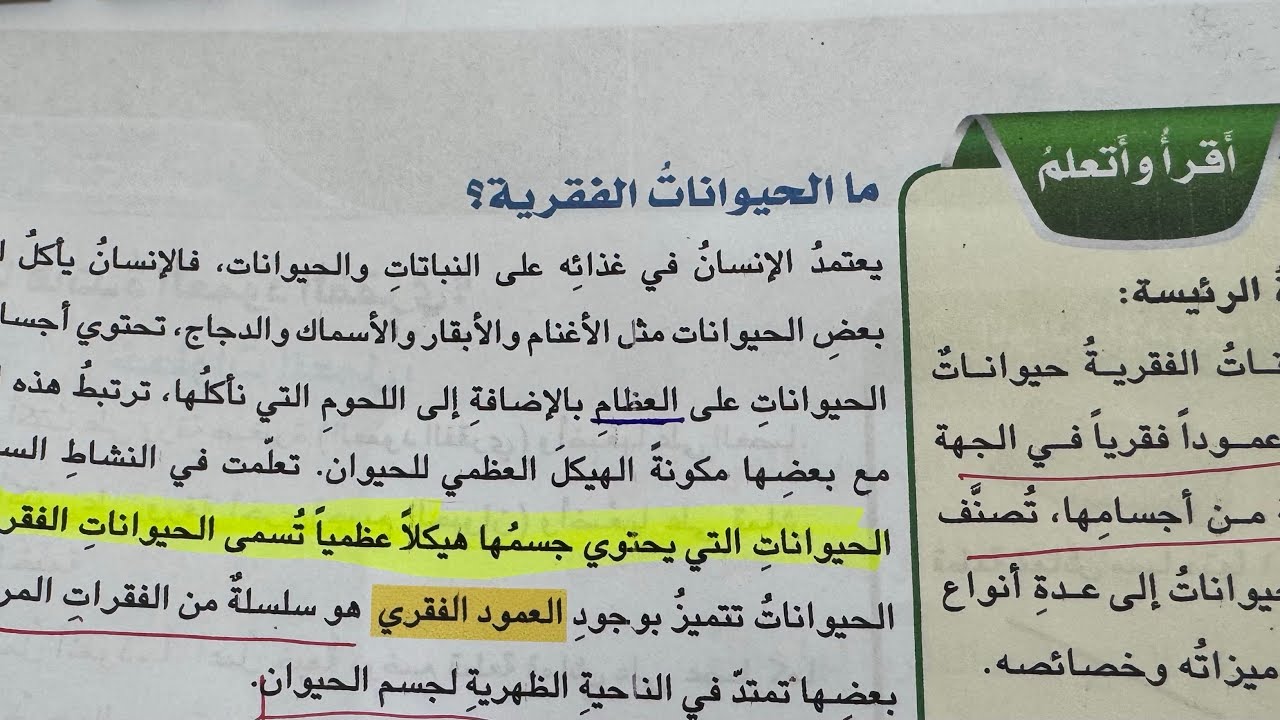 أَقرأُ وأَتعلمُ
الرئيسة:
الفقريةُ حيواناتٌ
عموداً فقرياً في الجهة
من أجسامِها، تُصنَّف
إلى عدةِ أنواع
ميزاتُه وخصائصه.
ما الحيواناتُ الفقرية؟
يعتمدُ الإنسانُ في غذائِه على النباتاتِ والحيوانات، فالإنسانُ يأكلُ
بعضِ الحيوانات مثل الأغنام والأبقار والأسماك والدجاج، تحتوي
الحيواناتِ على العظامِ بالإضافةِ إلى اللحومِ التي نأكلُها، ترتبطُ هذه
مع بعضِها مكونةً الهيكلَ العظمي للحيوان. تعلّمت في النشاطِ
الحيواناتِ التي يحتوي جسمُها هيكلاً عظمياً تُسمى الحيواناتِ
الحيواناتُ تتميزُ بوجودِ العمود الفقري هو سلسلةٌ من الفقراتِ
بعضِها تمتدّ في الناحيةِ الظهريةِ لجسم الحيوان.